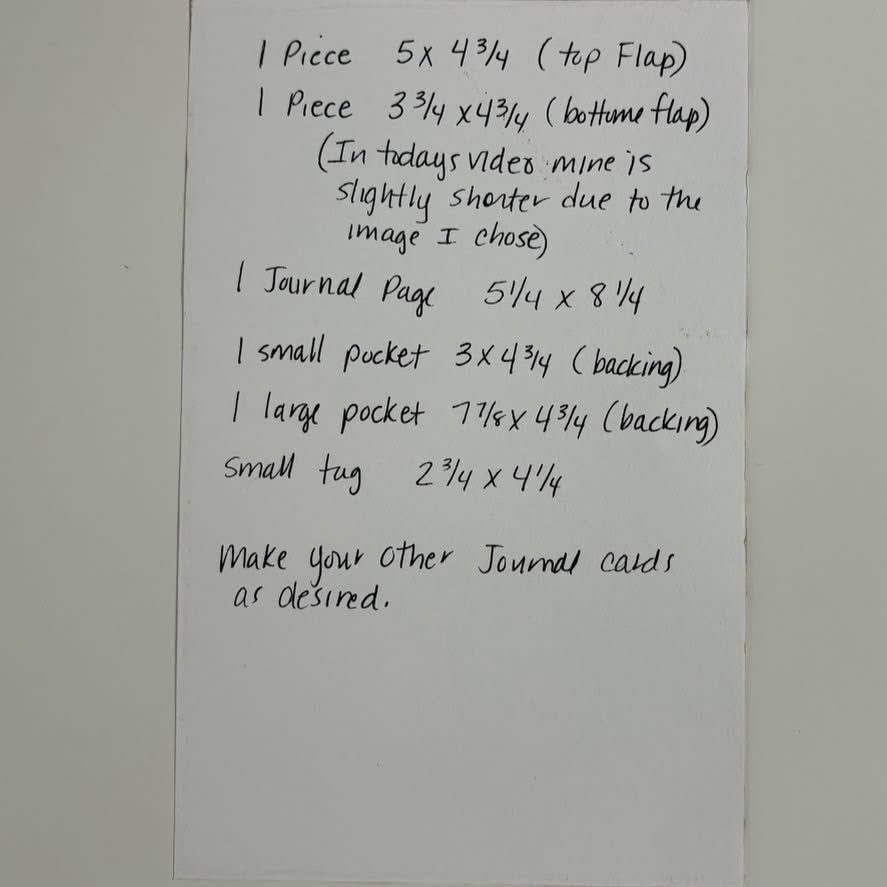 1 Piece 5 x 4 3/4 (top Flap)
1 Piece 3 3/4 x 4 3/4 (bottome flap)
(In todays video mine is
slightly shorter due to the
image I chose)
1 Journal Page 5 1/4 x 8 1/4
1 small pocket 3 x 4 3/4 (backing)
1 large pocket 7 7/8 x 4 3/4 (backing)
small tag 2 3/4 x 4 1/4
Make your other Journal cards
as desired.